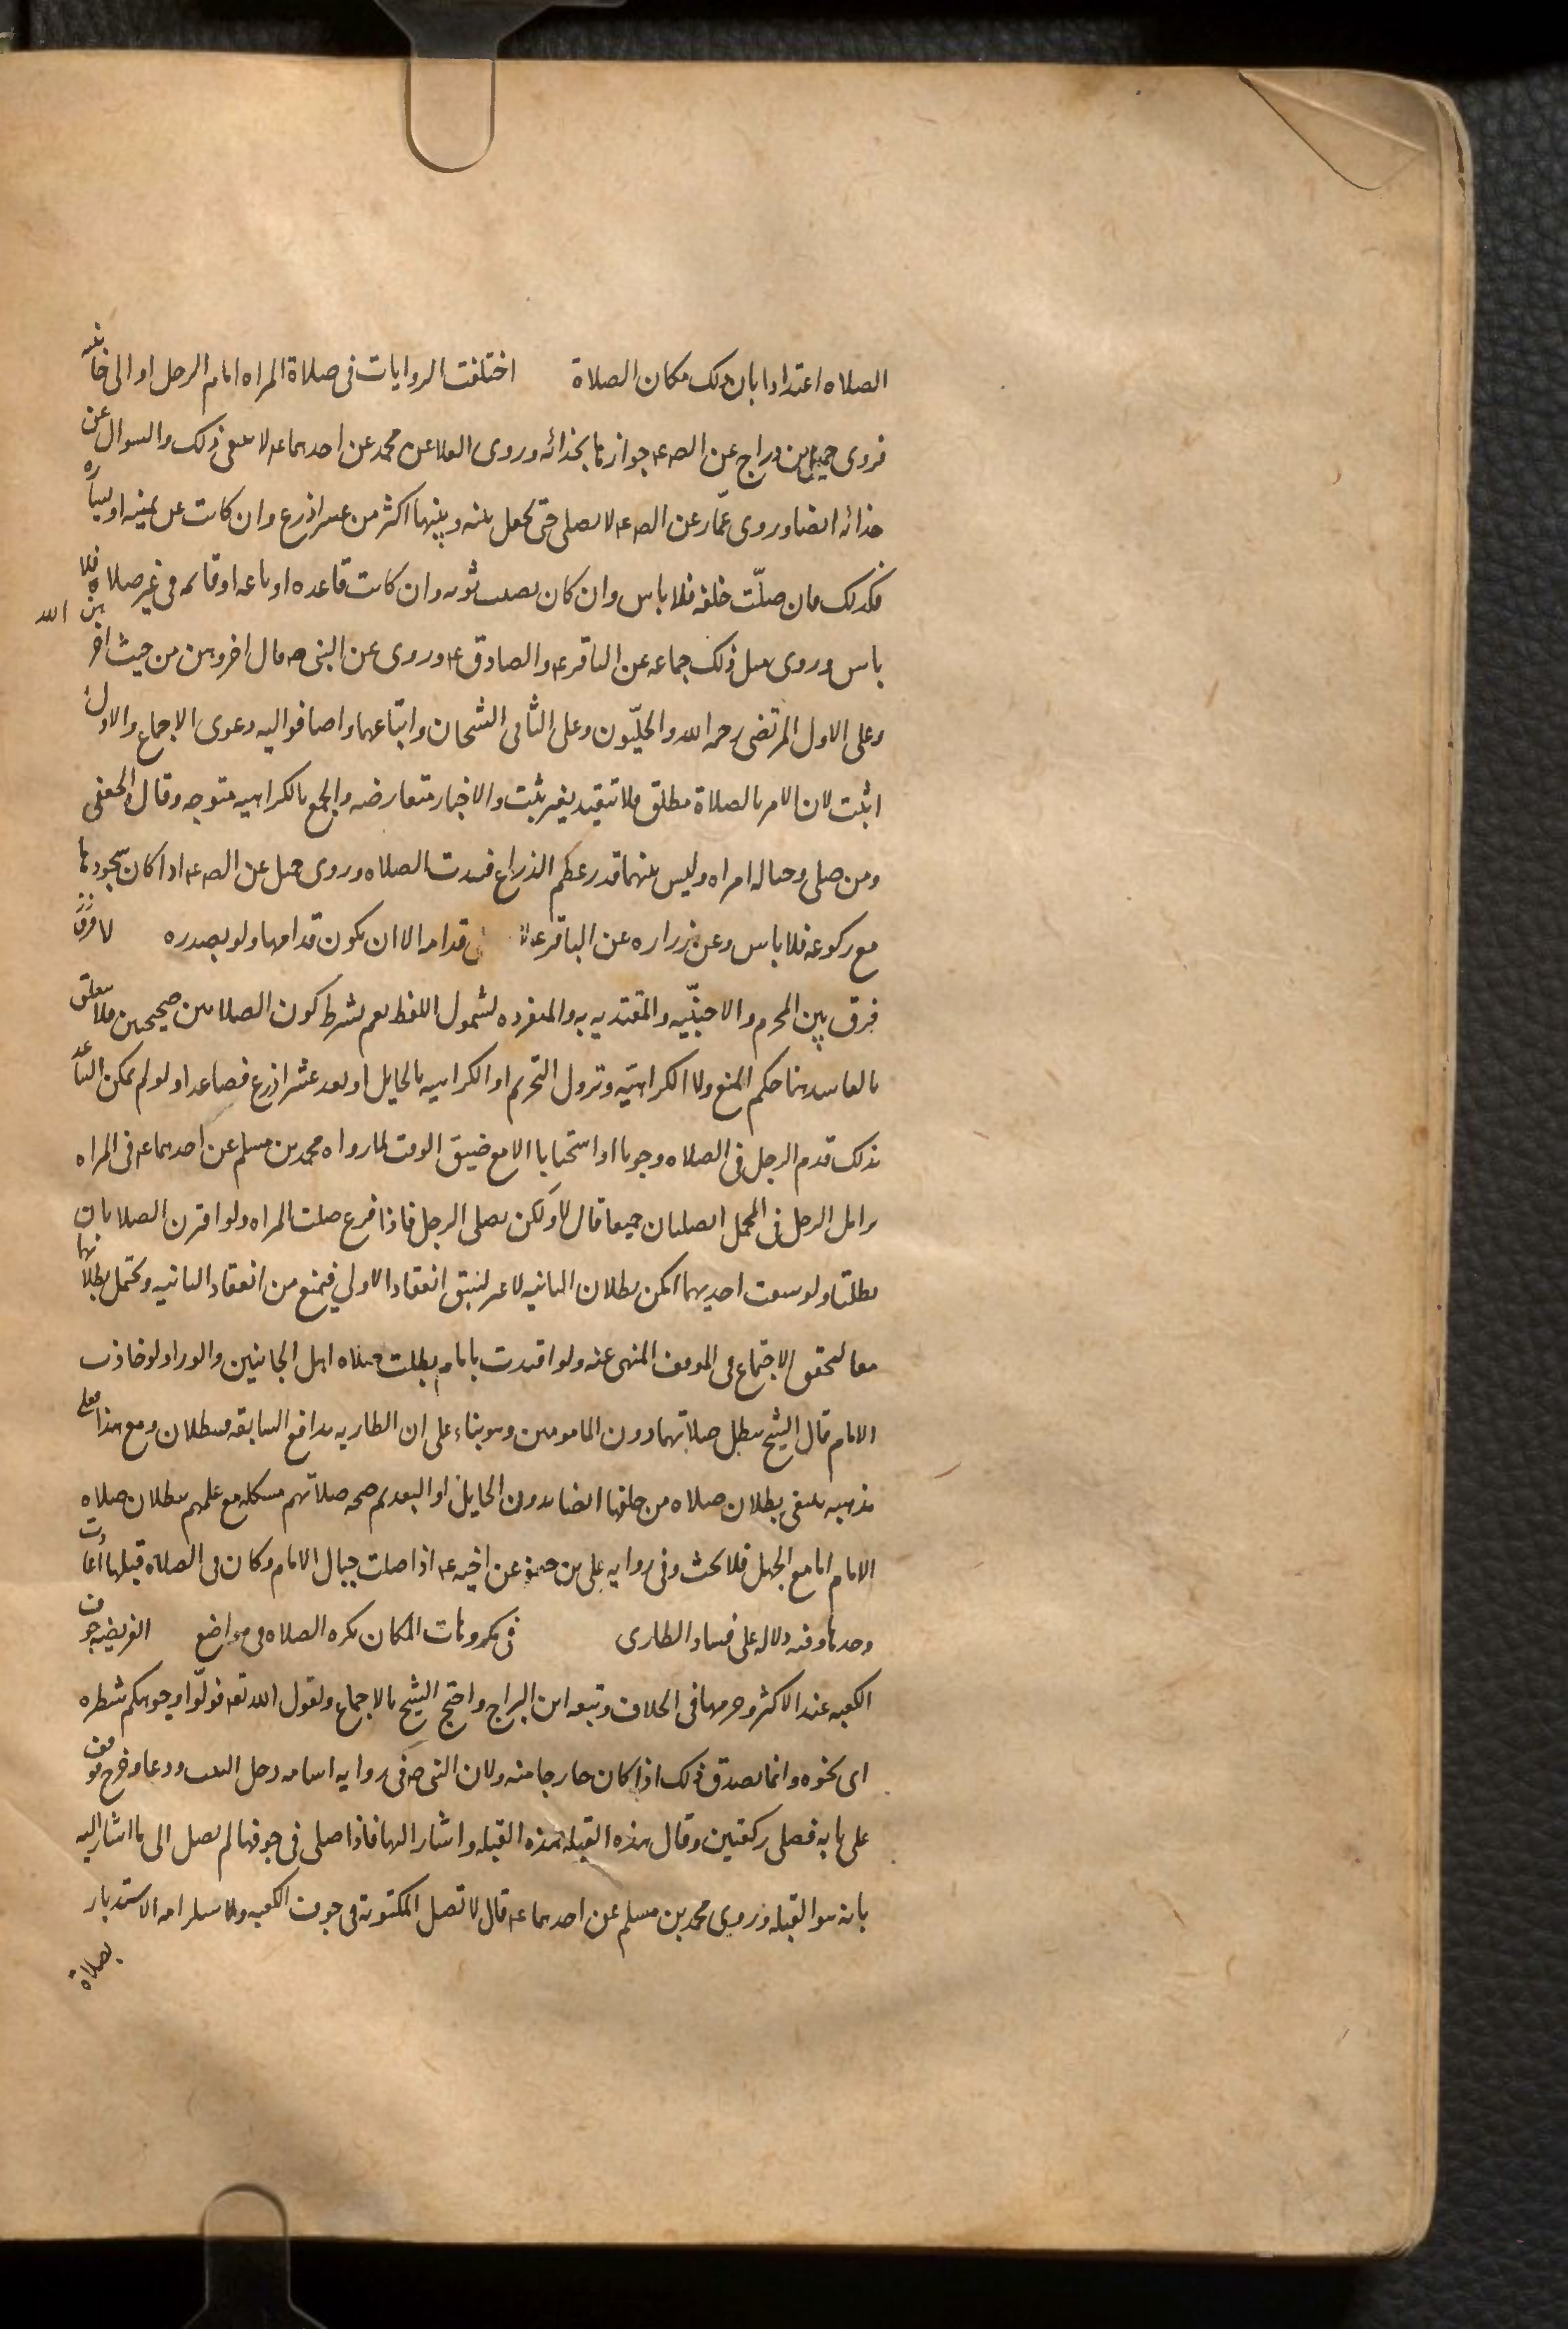 الصلاه اعتدادا بان ذلك مكان الصلاة اختلفت الروايات فى صلاة المراه امام الرجل او الى جانبه
فروى جميل بن دراج عن الصـ عـ جوازها بحذائه وروى العلا عن محمد عن احدهما عـ لا ينبغى ذلك والسوال عن
حذائه ايضا وروى عمّار عن الصـ عـ لا يصلى حتى يجعل بينه وبينها اكثر من عشر اذرع وان كانت عن يمينه او يساره
فكذلك فان صلّت خلفه فلا باس وان كان يصيب ثوبه وان كانت قاعده او نائمه او قائمه فى غير صلاه فلا
باس وروى مثل ذلك جماعه عن الباقر عـ والصادق عـ وروى عن النبى صـ قال اخروهن من حيث اخرهن الله
وعلى الاول المرتضى رحمه الله والحلّيون وعلى الثانى الشيخان واتباعهما واضافوا اليه دعوى الاجماع والاول
اثبت لان الامر بالصلاة مطلق فلا يتقيد بغير ثبت والاخبار متعارضه والجمع بالكراهيه متوجه وقال الجعفى
ومن صلى وحياله امراه وليس بينهما قدر عظم الذراع فسدت الصلاه وروى جميل عن الصـ عـ اذا كان سجودها
مع ركوعه فلا باس وعن زراره عن الباقر عـ لا قدامه الا ان يكون قدامها ولو بصدره لا فرق
فرق بين المحرم والاجنبّيه والمقتديه به والمنفرده لشمول اللفظ نعم يشرط كون الصلاتين صحيحتين فلا يتعلق
بالفاسد هنا حكم المنع ولا الكراهيّه وتزول التحريم او الكراهيه بالحايل او بعد عشر اذرع فصاعدا ولو لم يمكن التباعد
بذلك قدم الرجل فى الصلاه وجوبا او استحبابا الا مع ضيق الوقت لما رواه محمد بن مسلم عن احدهما عـ فى المراه
تزامل الرجل فى المحمل ايصليان جميعا قال لا ولكن يصلى الرجل فاذا فرغ صلت المراه ولو اقترن الصلاتان
بطلتا ولو سبقت احديهما امكن بطلان الثانيه لا غير لسبق انعقاد الاولى فيمنع من انعقاد الثانيه ويحتمل بطلانهما
معا لتحقق الاجتماع فى الموقف المنهى عنه ولو اقتدت بامام بطلت صلاه اهل الجانبين والورا ولو حاذت
الامام قال الشيخ تبطل صلاتهما دون المامومين وهو بناء على ان الطاريه تدافع السابقه فيبطلان ومع هذا فعلى
مذهبه ينبغى بطلان صلاه من خلفها ايضا بدون الحايل او البعد ثم صحه صلاتهم مشكله مع علمهم ببطلان صلاه
الامام اما مع الجهل فلا بحث وفى روايه على بن جعفر عن اخيه عـ اذا صلت حيال الامام وكان فى الصلاة قبلها اعادت
وحدها وفيه دلاله على فساد الطارى فى مكروهات المكان تكره الصلاه فى مواضع الفريضه جوف
الكعبه عند الاكثر وحرمها فى الخلاف وتبعه ابن البراج واحتج الشيخ بالاجماع ولقول الله تعـ فولّوا وجوهكم شطره
اى نحوه وانما يصدق ذلك اذا كان خارجا منه ولان النبى صـ فى روايه اسامه دخل البيت ودعا وخرج فوقف
على بابه فصلى ركعتين وقال هذه القبله هذه القبله واشار اليها فاذا صلى فى جوفها لم يصل الى ما اشار اليه
بانه هو القبله وروى محمد بن مسلم عن احدهما عـ قال لا تصل المكتوبه فى جوف الكعبه ولاستلزامه الاستدبار
بصلاة